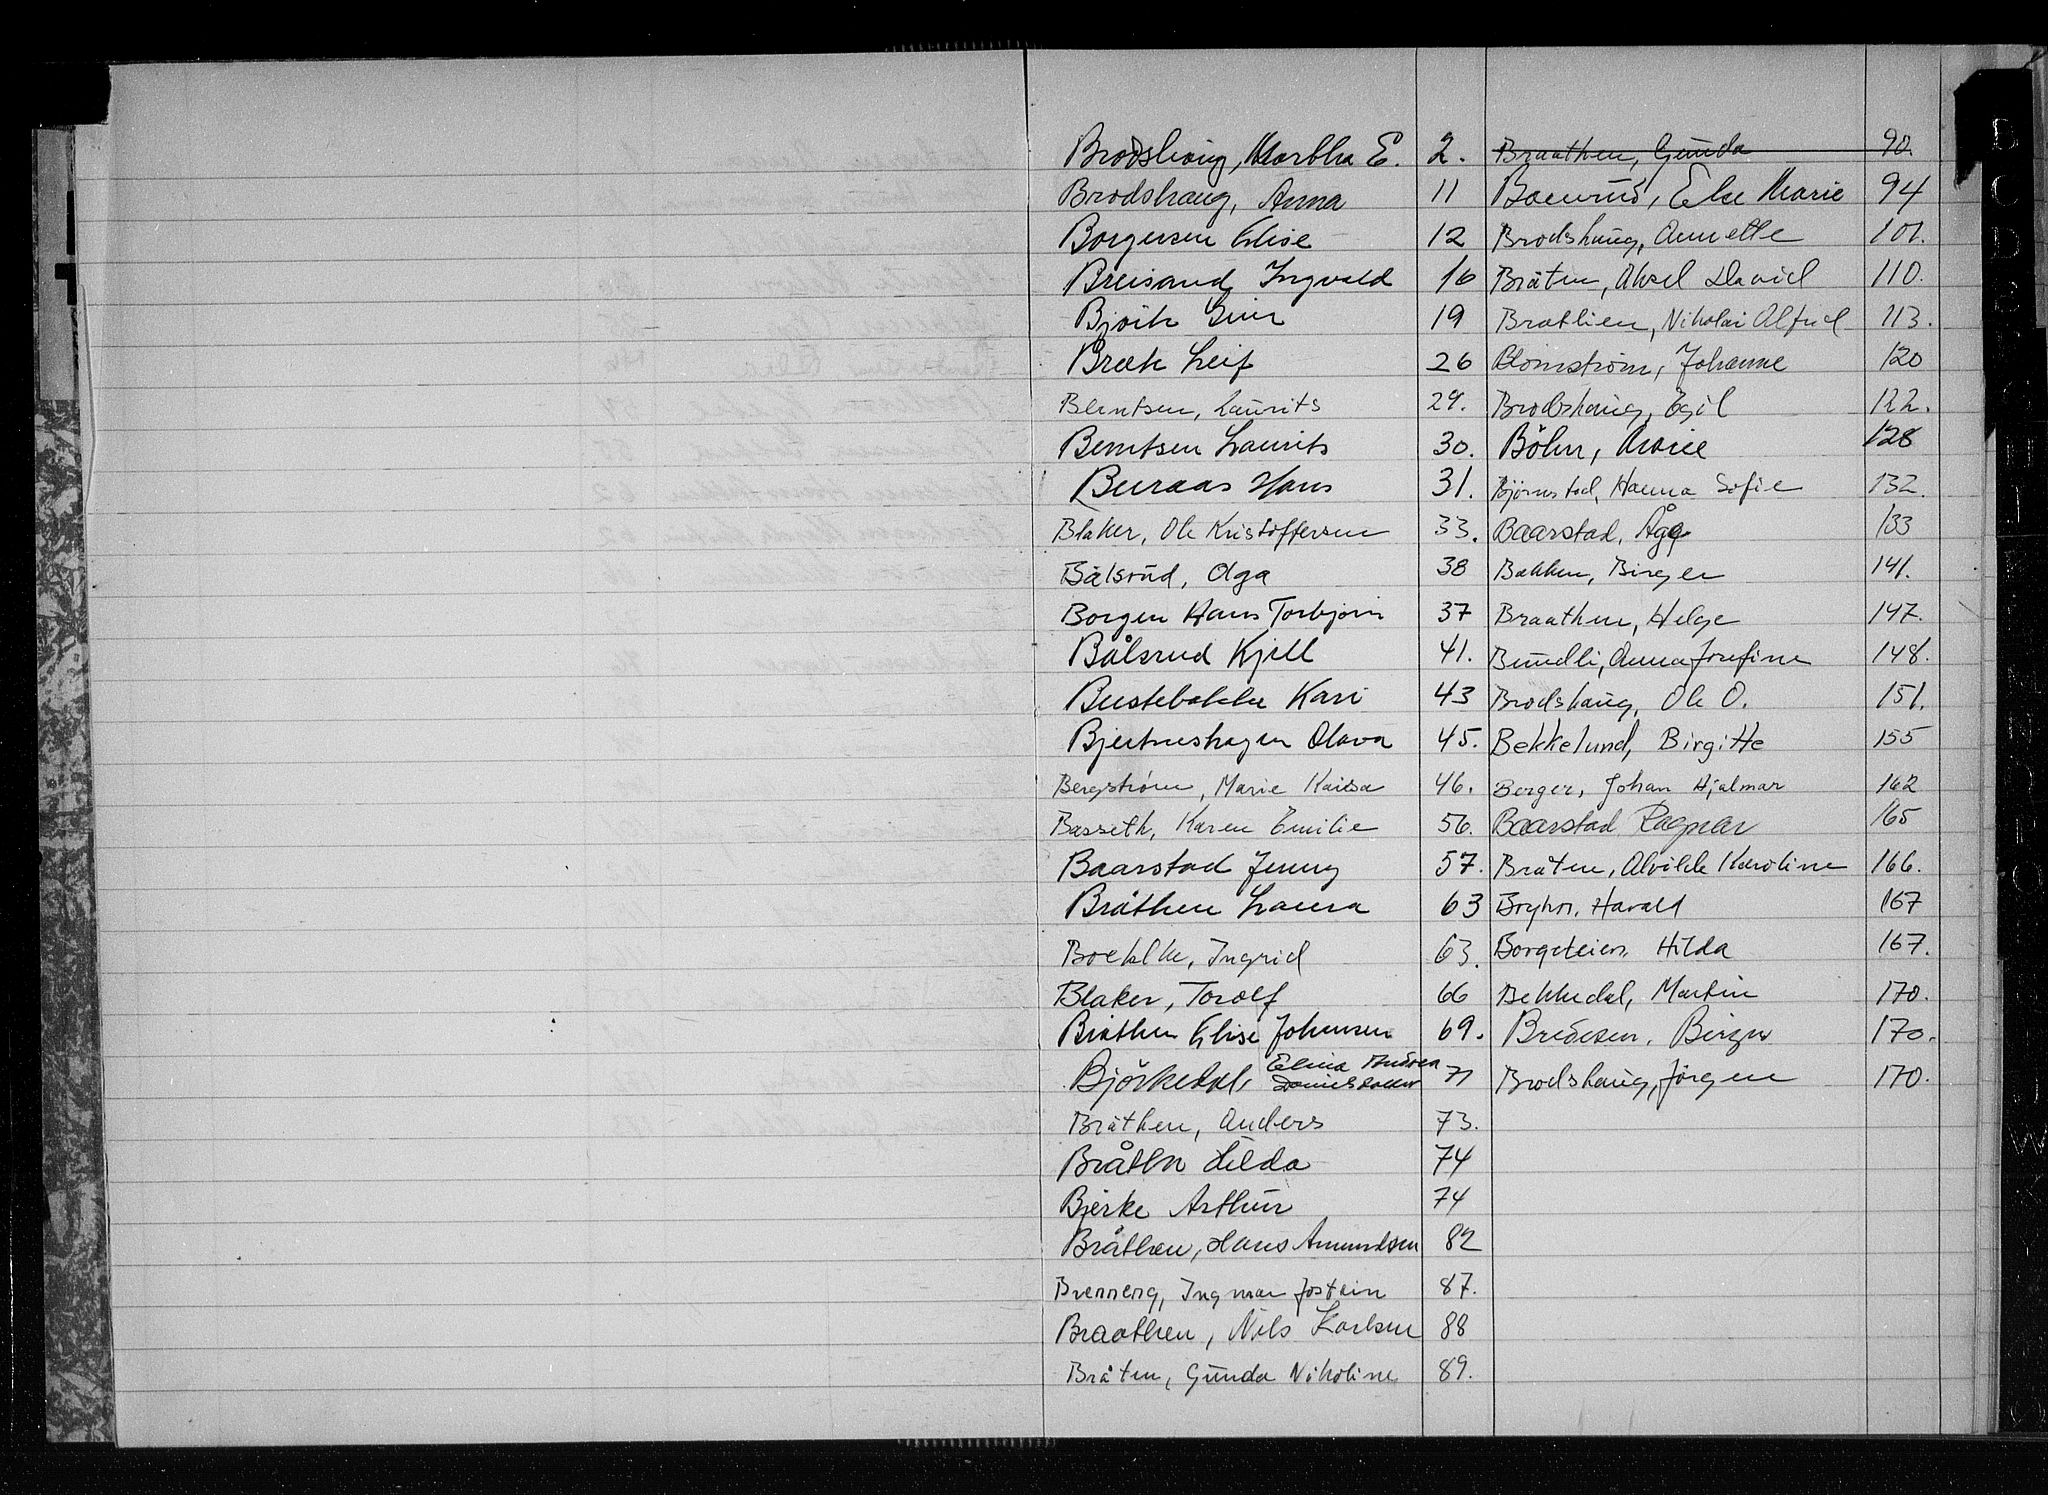 Brodshaug, Martha E. 2.
Brodshaug, Anna 11
Borgersen Elise 12
Breisand, Ingvald 16
Bjørk Geir 19
Bræk Leif 26
Berntsen, Laurits 29.
Berntsen Laurits 30.
Buraas Hans 31.
Blaker, Ole Kristoffersen 33.
Bålsrud, Olga 38
Borgen Hans Torbjørn 37
Bålsrud Kjell 41.
Bustebakke Kari 43
Bjertneshagen Olava 45.
Bergstrøm, Marie Kaisa 46.
Basseth, Karen Emilie 56.
Baarstad Jenny 57.
Bråthen Laura 63
Boehlke, Ingrid 63.
Blaker, Torolf 66
Bråthen Elise Johansen 69.
Björkedal, Elina Andrea Danielsdatter 71
Bråthen, Anders 73.
Bråthn Hilda 74
Bjerke Arthur 74
Bråthen, Hans Amundsen 82
Brenneng, Ingmar Jostein 87.
Braathen, Nils Karlsen 88
Bråten, Gunda Nikoline 89.
Braathen, Gunda 90.
Else Marie 94
Brodshaug, Annette 101.
Bråten, Aksel David 110.
Brathen, Nikolai Alfred 113.
Blomstrøm, Johanne 120
Brodshaug, Egil 122.
Böhn, Marie 128
Bjørnstad, Hanna Sofie 132.
Baarstad, Åge 133
Bakken, Birger 141.
Braathen, Helge 147.
Bundli, Anna Josefine 148.
Brodshaug, Ole O. 151.
Bekkelund, Birgitte 155
Berger, Johan Hjalmar 162
Baarstad Ragnar 165
Bråten, Alvilde Karoline 166.
Bryhn, Harald 167
Borgeteien, Hilda 167.
Bekkedal, Martin 170.
Bredesen, Birger 170.
Brodshaug, Jörgen 170.